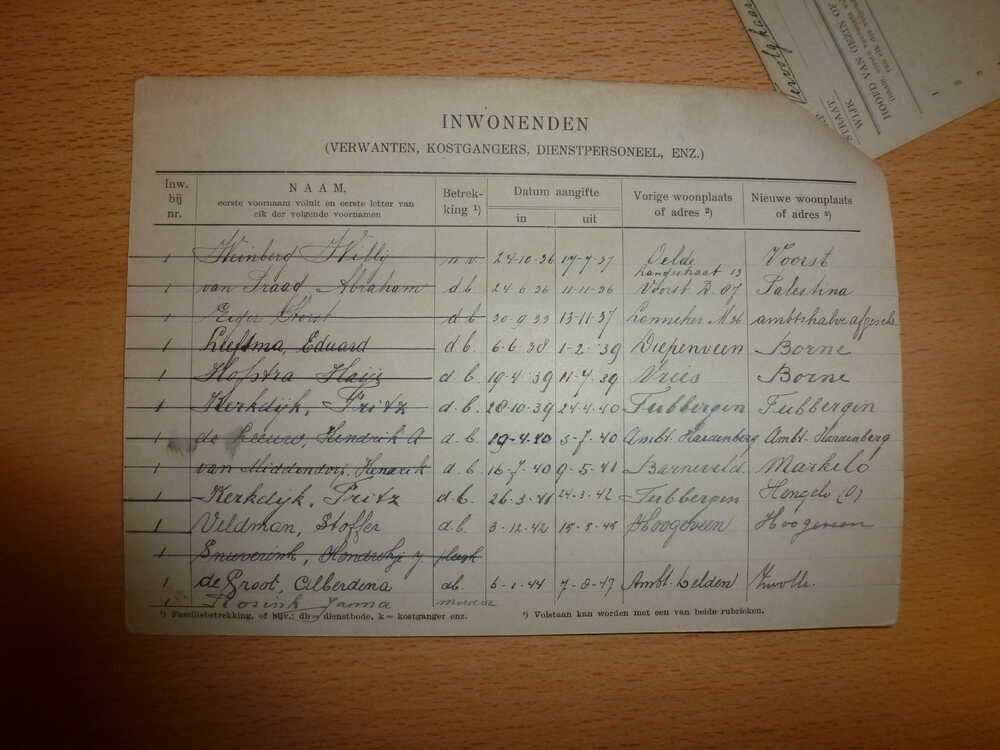 INWONENDEN
(VERWANTEN, KOSTGANGERS, DIENSTPERSONEEL, ENZ.)
Inw. bij nr. NAAM, eerste voornaam voluit en eerste letter van elk der volgende voornamen Betrekking ¹) Datum aangifte in uit Vorige woonplaats of adres ²) Nieuwe woonplaats of adres ²)
1 Weinberg Willij n.v. 24-10-36 17-7-37 Oelde Langestraat 13 Voorst
1 van Praag Abraham d.b. 24-6-36 11-11-36 Voorst D 97 Palestina
1 Horst d.b. 30-9-33 13-11-37 Lonneker ambtshalve
1 Leefsma, Eduard d.b. 6-6-38 1-2-39 Diepenveen Borne
1 Hofstra Haije d.b. 19-4-39 11-7-39 Vries Borne
1 Kerkdijk, Fritz d.b. 28-10-39 24-4-40 Tubbergen Tubbergen
1 de Leeuw, Hendrik A d.b. 29-4-40 5-7-40 Ambt-Hardenberg Ambt-Hardenberg
1 van Middendorp, Hendrik d.b. 16-7-40 9-5-41 Barneveld Markelo
1 Kerkdijk, Fritz d.b. 26-3-41 24-3-42 Tubbergen Hengelo (O)
1 Veldman, Stoffer d.b. 3-12-42 15-8-45 Hoogeveen Hoogeveen
1 Hendrikje J
1 de Groot, Alberdena db. 6-1-44 7-8-47 Ambt-Delden Zwolle.
1 Rosink Janna moeder
¹) Familiebetrekking, of bijv.: db = dienstbode, k = kostganger enz. ²) Volstaan kan worden met een van beide rubrieken.
HOOFD VAN GEZIN OF
WIJK
STRAAT